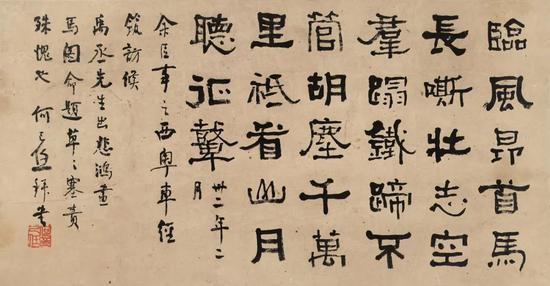 臨風昂首馬
長嘶壯志空
羣蹋鐵蹄不
管胡塵千萬
里祗看山月
聽征鼙
卅二年二
月
余以事之西粵車經
築訪候
禹丞先生出悲鴻畫
馬圖命題草々塞責
殊愧也 何之 拜書